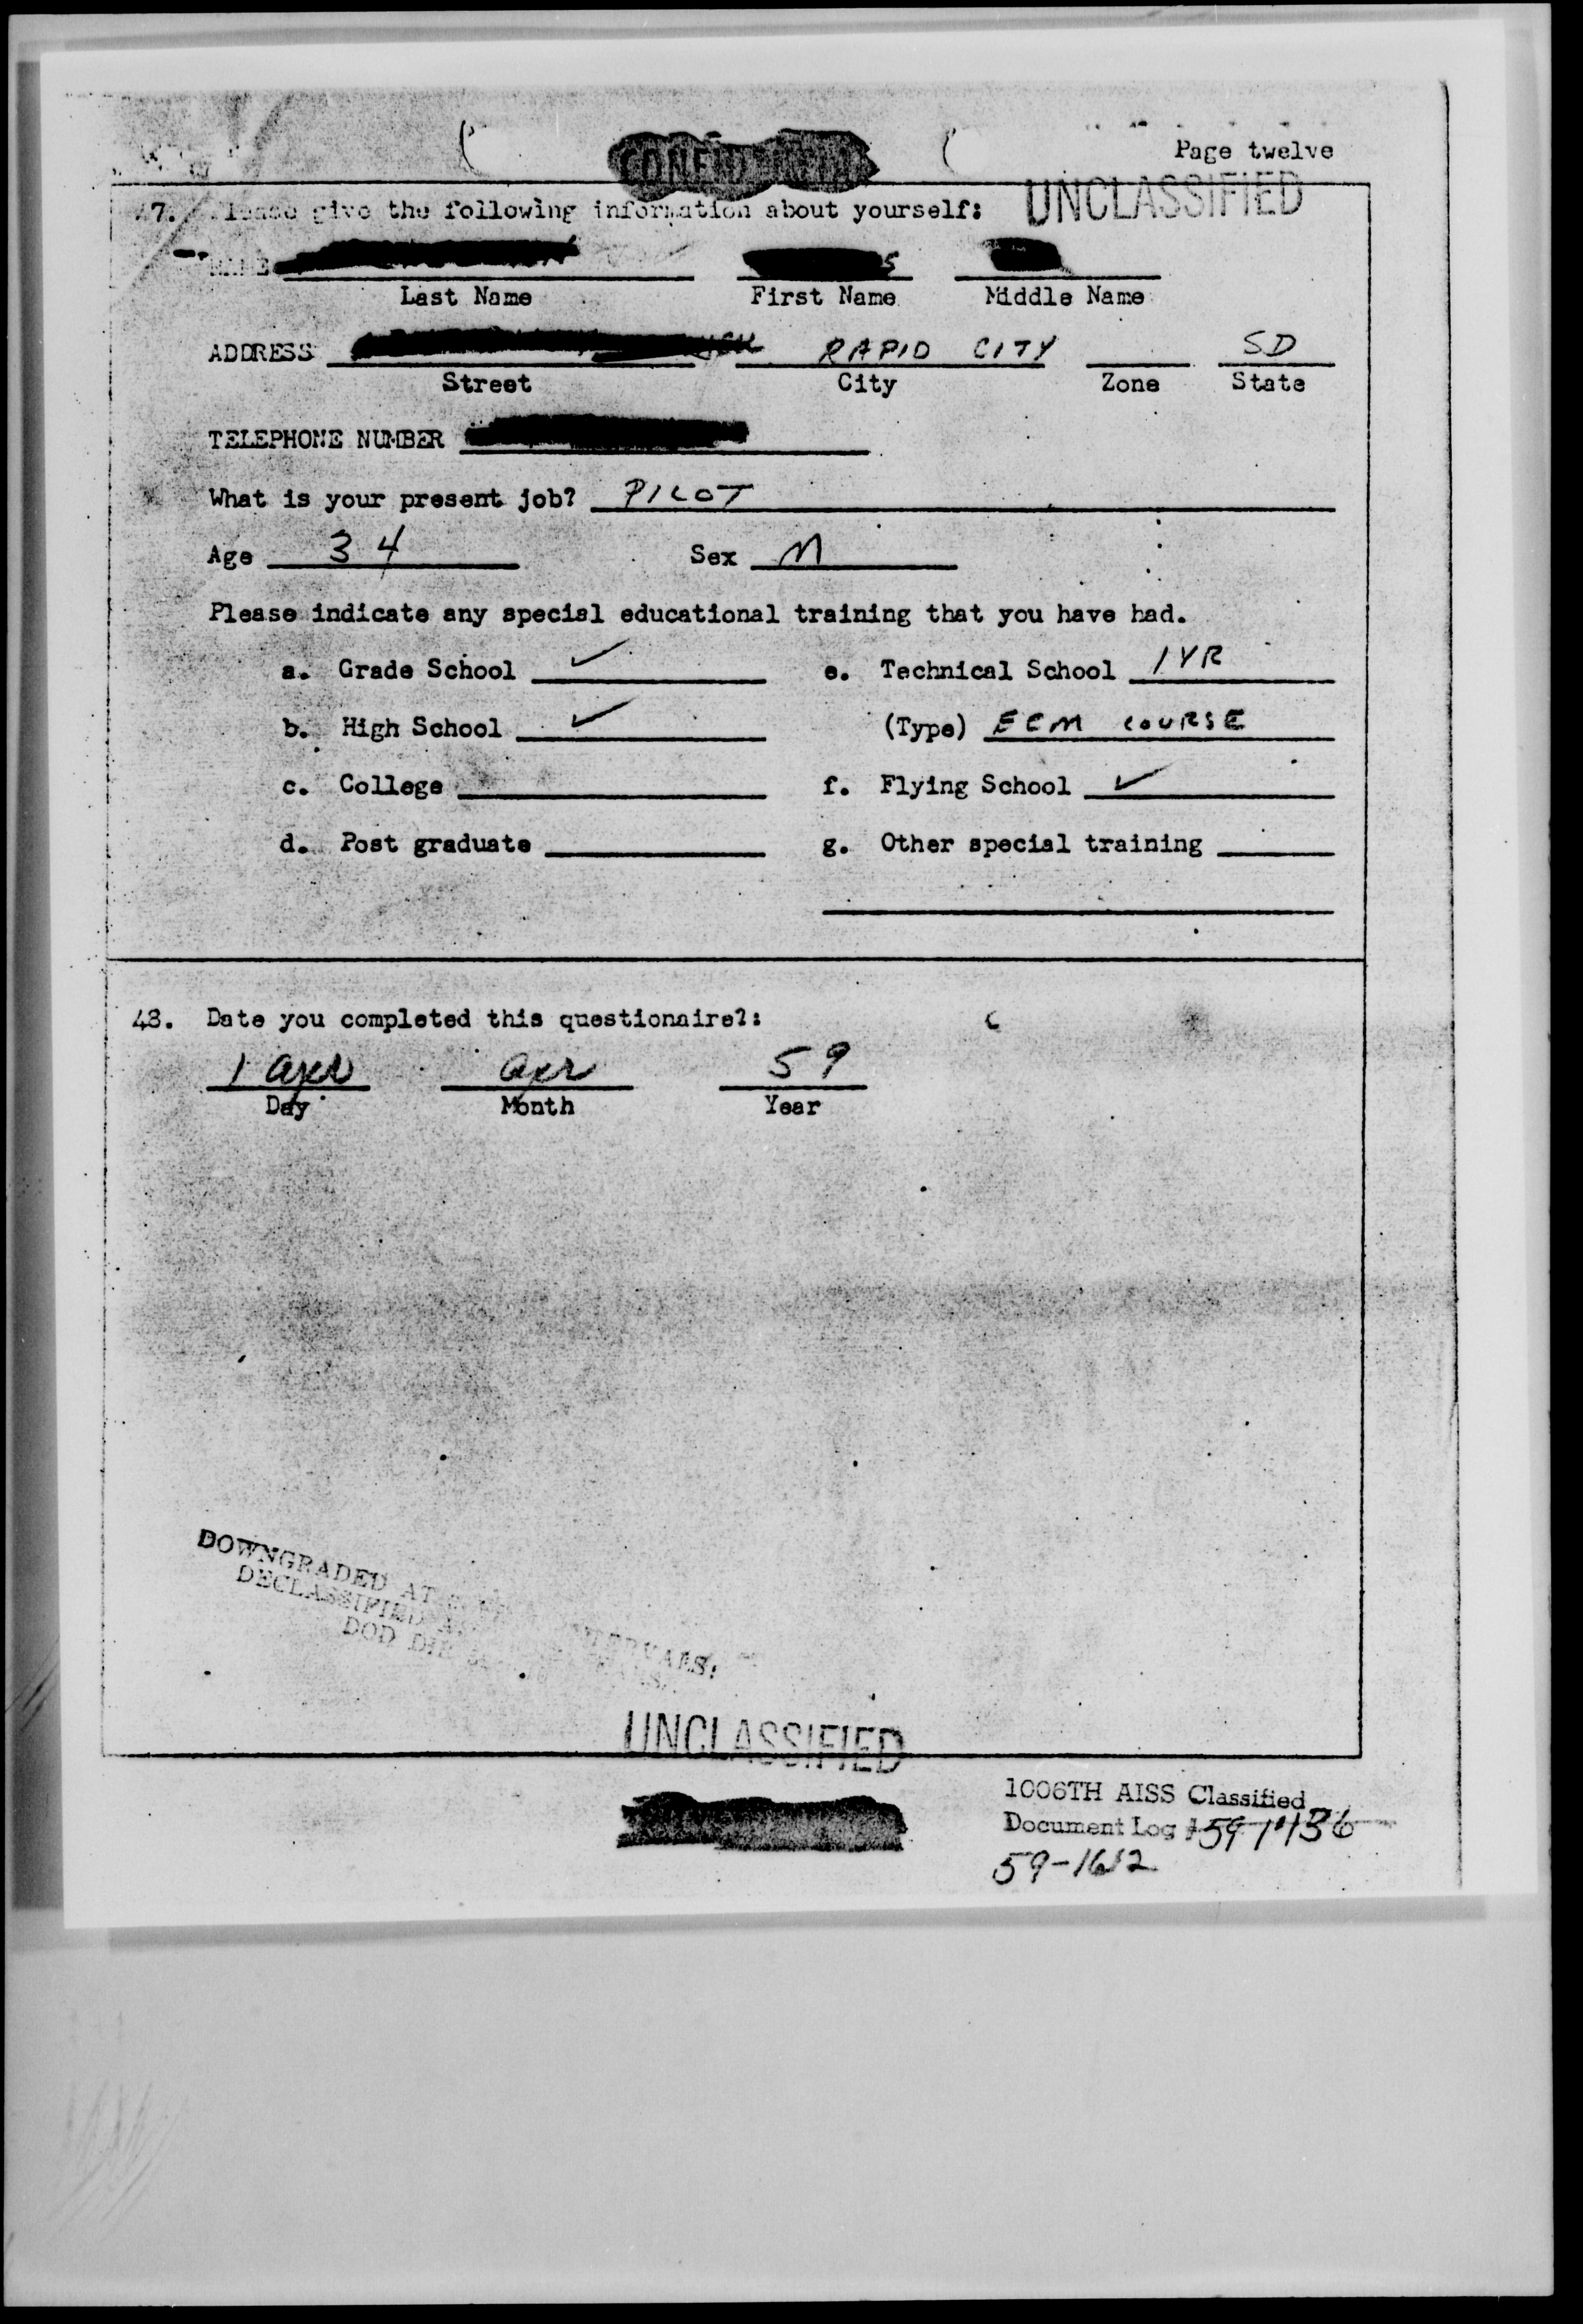 Page twelve
UNCLASSIFIED
47. Please give the following information about yourself:
NAME
Last Name First Name Middle Name
ADDRESS RAPID CITY SD
Street City Zone State
TELEPHONE NUMBER
What is your present job? PILOT
Age 34 Sex M
Please indicate any special educational training that you have had.
a. Grade School ✓ e. Technical School 1 YR
b. High School ✓ (Type) ECM COURSE
c. College f. Flying School ✓
d. Post graduate g. Other special training
48. Date you completed this questionnaire?:
1 apr apr 59
Day Month Year
DOWNGRADED AT INTERVALS:
DECLASSIFIED
DOD DIR
UNCLASSIFIED
1006TH AISS Classified
Document Log
59-1612